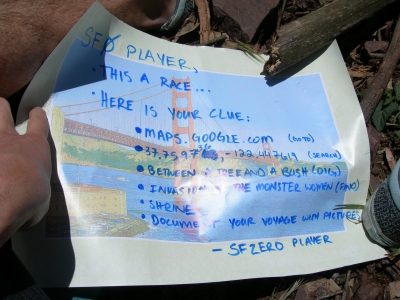 SFØ PLAYER,
• THIS A RACE...
• HERE IS YOUR CLUE:
• MAPS.GOOGLE.COM (GOTO)
• -122.447619 (SEARCH)
• BETWEEN A TREE AND A BUSH (DIG)
• INVASION OF THE MONSTER WOMEN (FIND)
• SHRINE
• DOCUMENT YOUR VOYAGE WITH PICTURES
- SFZERO PLAYER